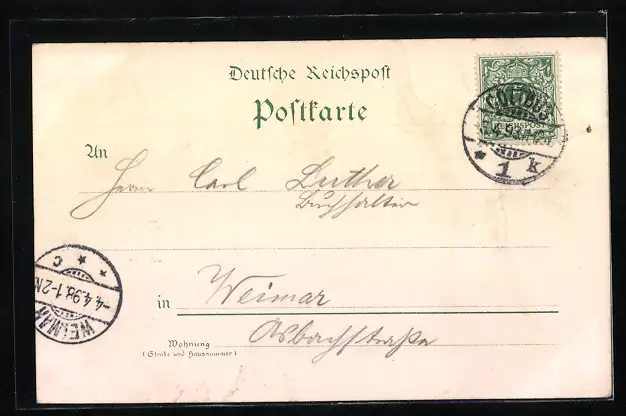 Deutsche Reichspost
Postkarte
COTTBUS
4.98
1 k
REICHSPOST
An
Herrn Carl Luther
Buchhalter
WEIMAR
-4.4.98.1-2N.
* * C
in Weimar
Asbachstraße
Wohnung
(Straße und Hausnummer)